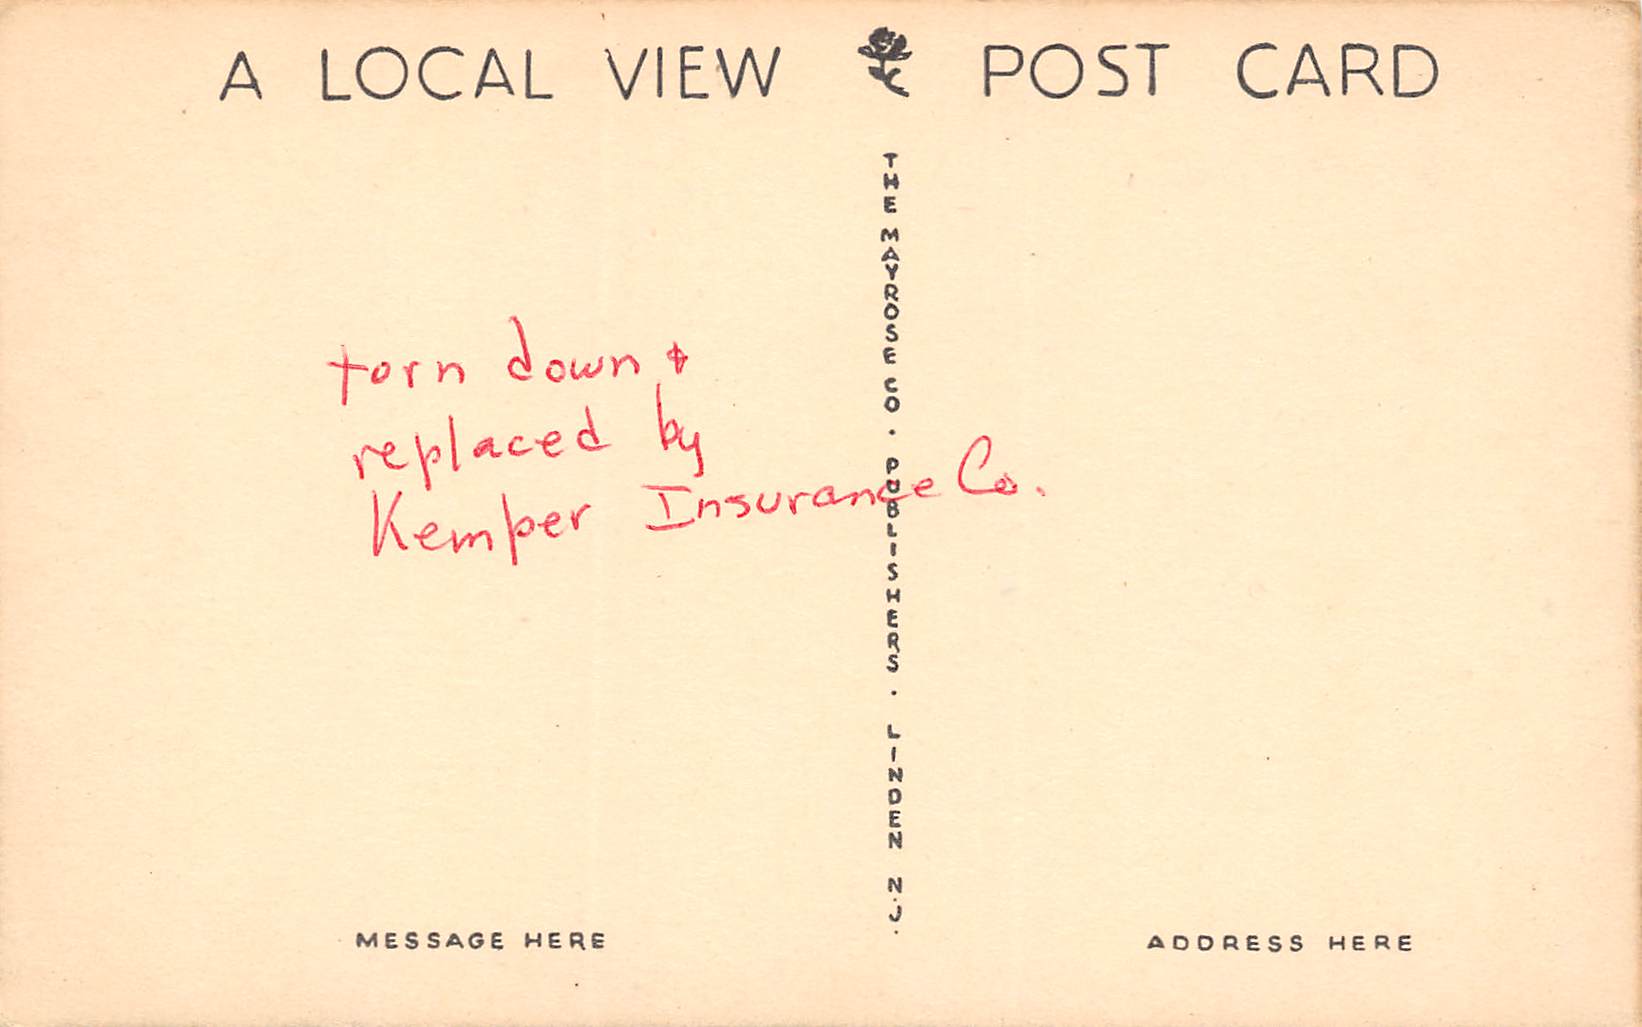 A LOCAL VIEW POST CARD
THE MAYROSE CO. PUBLISHERS. LINDEN N.J.
torn down &
replaced by
Kemper Insurance Co.
MESSAGE HERE
ADDRESS HERE